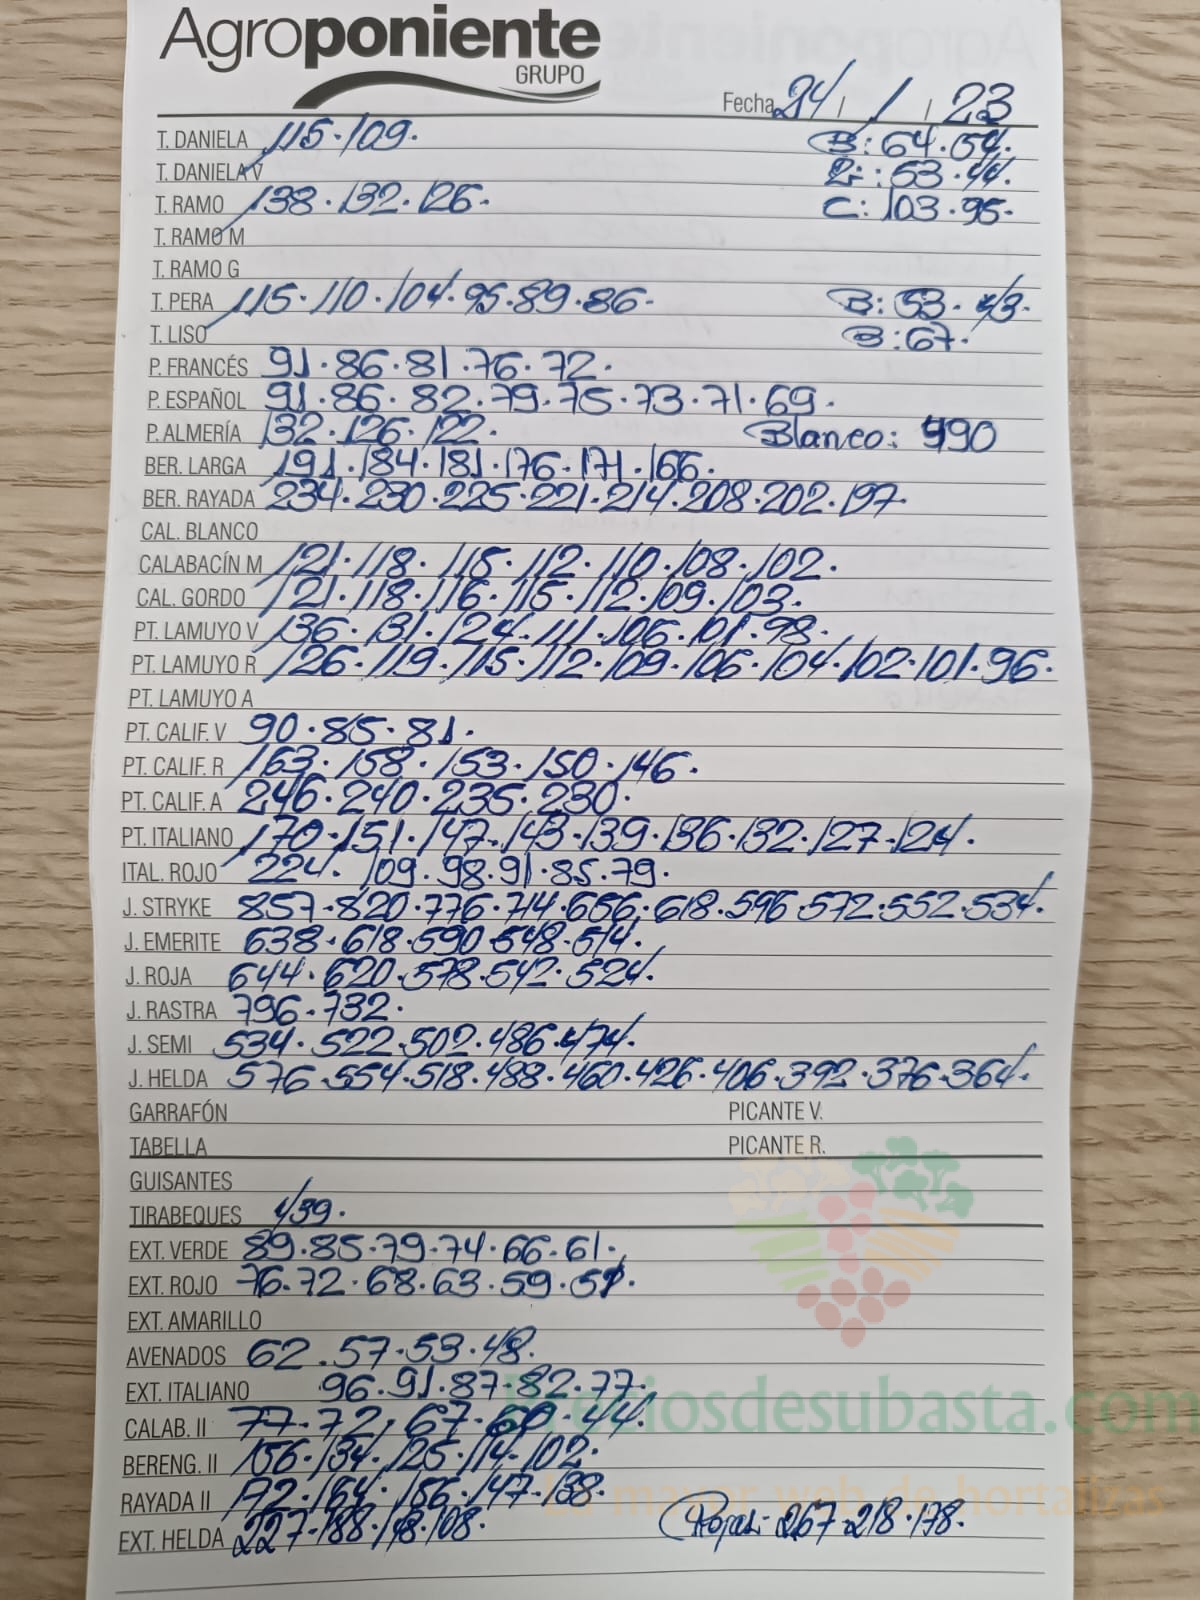 Agroponiente
GRUPO
Fecha 24 / 1 / 23
T. DANELA 115·109· B: 64·54·
T. DANIELA V 2ª: 53·44·
T. RAMO 138·132·126· C: 103·95·
T. RAMO M
T. RAMO G
T. PERA 115·110·104·95·89·86· B: 53·43·
T. LISO B: 67·
P. FRANCÉS 91·86·81·76·72·
P. ESPAÑOL 91·86·82·79·75·73·71·69·
P. ALMERÍA 132·126·122· Blanco: 490
BER. LARGA 191·184·181·176·171·166·
BER. RAYADA 234·230·225·221·214·208·202·197·
CAL. BLANCO
CALABACÍN M 121·118·115·112·110·108·102·
CAL. GORDO 121·118·116·115·112·109·103·
PT. LAMUYO V 136·131·124·111·106·101·98·
PT. LAMUYO R 126·119·115·112·109·106·104·102·101·96·
PT. LAMUYO A
PT. CALIF. V 90·85·81·
PT. CALIF. R 163·158·153·150·146·
PT. CALIF. A 246·240·235·230·
PT. ITALIANO 170·151·147·143·139·136·132·127·124·
ITAL. ROJO 224·109·98·91·85·79·
J. STRYKE 857·820·776·714·656·618·596·572·552·534·
J. EMERITE 638·618·590·548·514·
J. ROJA 644·620·578·542·524·
J. RASTRA 796·732·
J. SEMI 534·522·502·486·474·
J. HELDA 576·554·518·488·460·426·406·392·376·364·
GARRAFÓN PICANTE V.
TABELLA PICANTE R.
GUISANTES
TIRABEQUES 439·
EXT. VERDE 89·85·79·74·66·61·
EXT. ROJO 76·72·68·63·59·51·
EXT. AMARILLO
AVENADOS 62·57·53·48·
EXT. ITALIANO 96·91·87·82·77·
CALAB. II 77·72·67·60·44·
preciosdesubasta.com
BERENG. II 156·134·125·114·102·
RAYADA II 172·164·156·147·138·
la mayor web de hortalizas
EXT. HELDA 227·188·148·108· Rojas: 267·218·178·